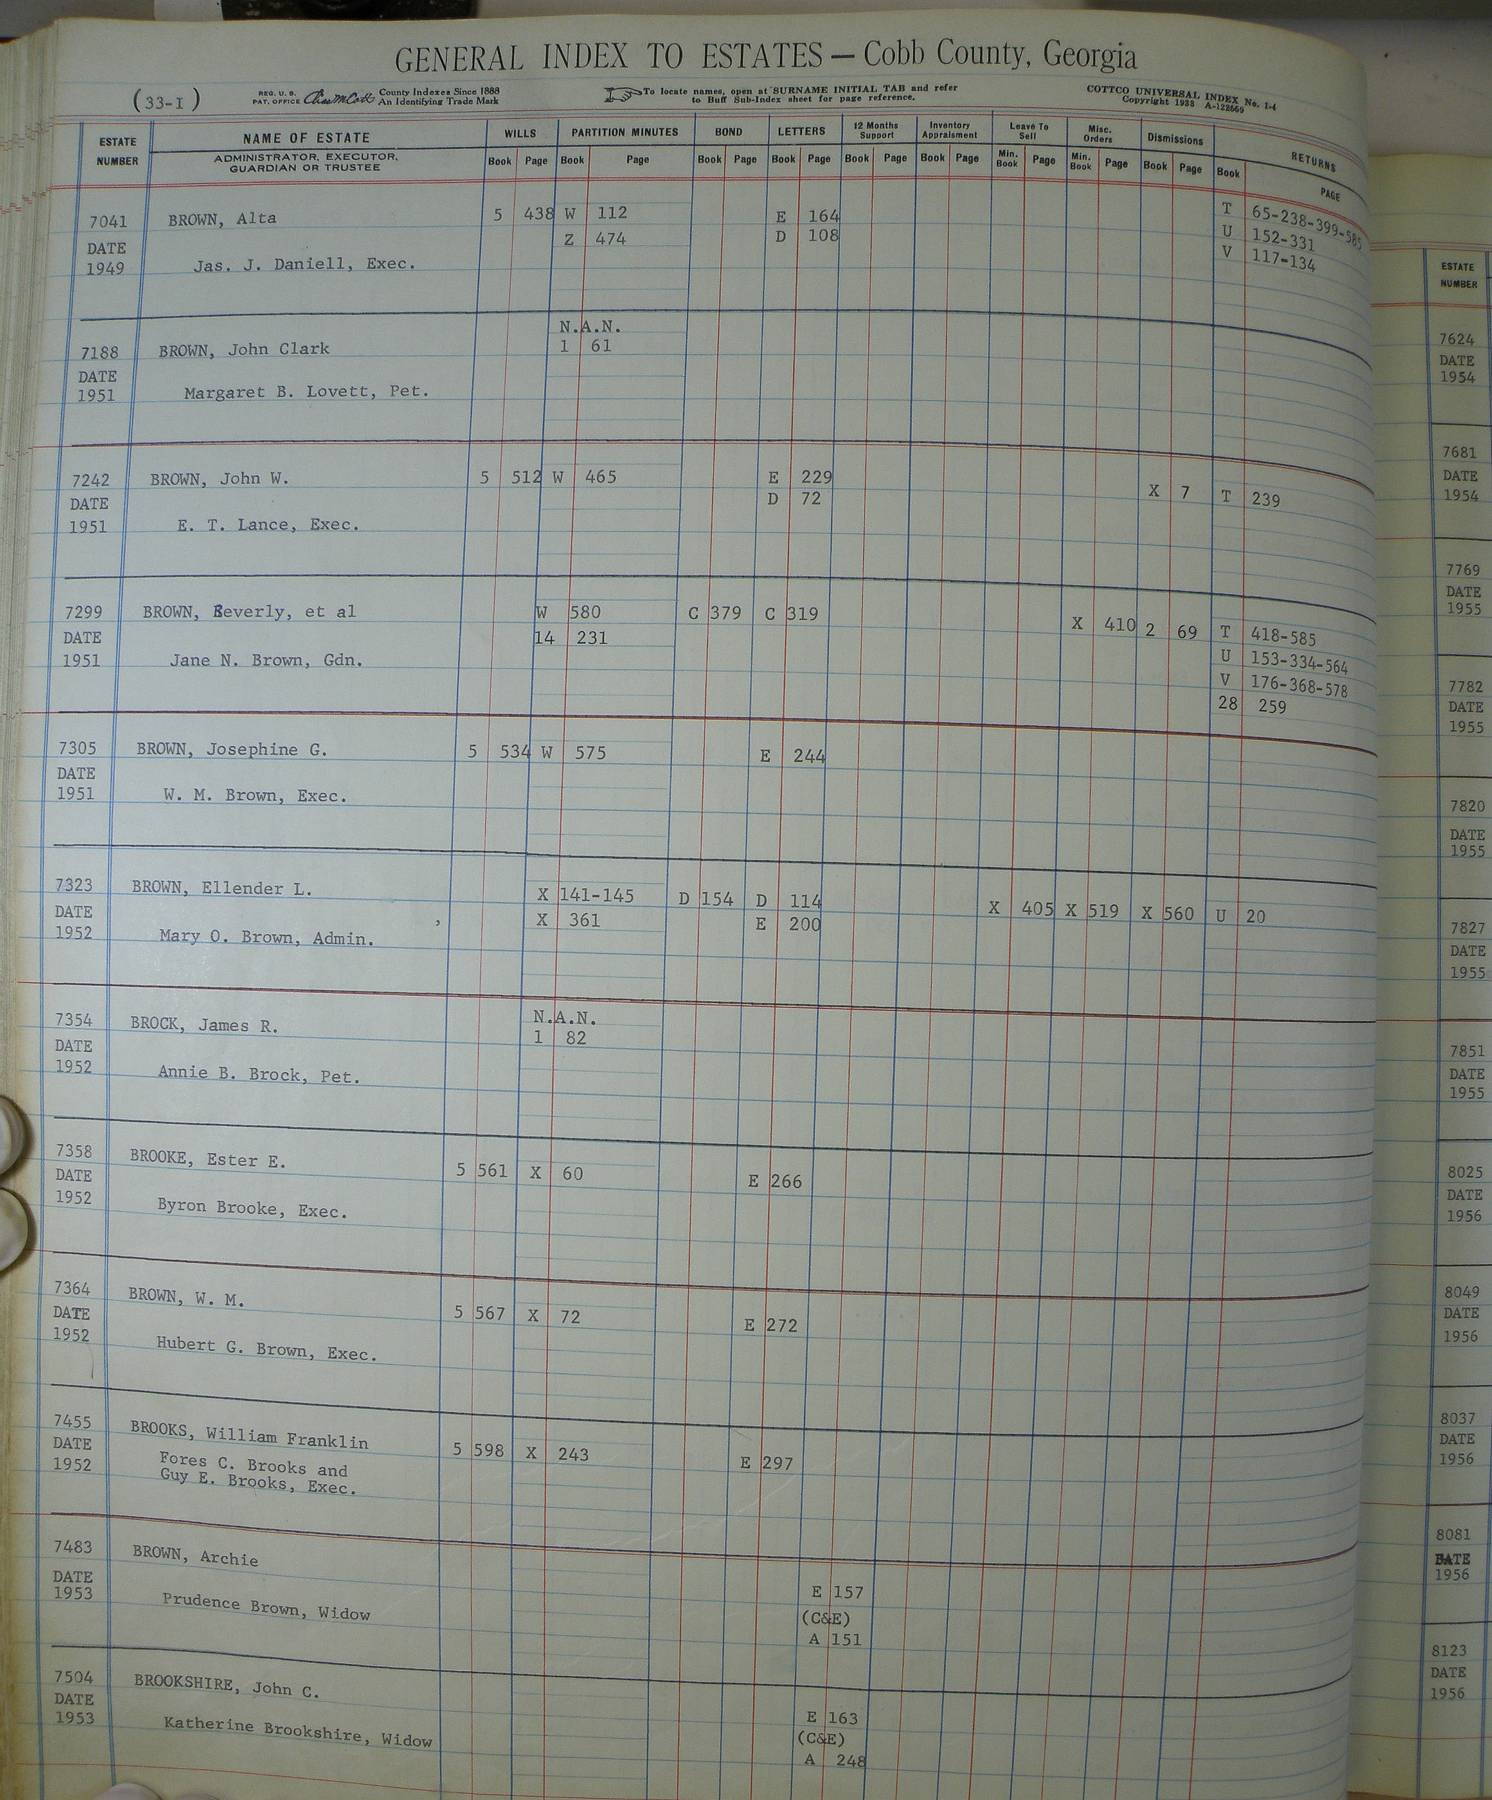 GENERAL INDEX TO ESTATES — Cobb County, Georgia
(33-I)
REG. U. S. PAT. OFFICE
County Indexes Since 1888
An Identifying Trade Mark
To locate names, open at SURNAME INITIAL TAB and refer
to Buff Sub-Index sheet for page reference.
COTTCO UNIVERSAL INDEX No. 1-4
Copyright 1938 A-122669
ESTATE NUMBER
NAME OF ESTATE
ADMINISTRATOR, EXECUTOR,
GUARDIAN OR TRUSTEE
WILLS PARTITION MINUTES BOND LETTERS 12 Months Support Inventory Appraisment Leave To Sell Misc. Orders Dismissions RETURNS
Book Page Book Page Book Page Book Page Book Page Book Page Min. Book Page Min. Book Page Book Page Book PAGE
7041 BROWN, Alta 5 438 W 112 E 164 T 65-238-399-585
DATE Z 474 D 108 U 152-331
1949 Jas. J. Daniell, Exec. V 117-134
N.A.N.
7188 BROWN, John Clark 1 61
DATE
1951 Margaret B. Lovett, Pet.
7242 BROWN, John W. 5 512 W 465 E 229 X 7 T 239
DATE D 72
1951 E. T. Lance, Exec.
7299 BROWN, Beverly, et al W 580 C 379 C 319 X 410 2 69 T 418-585
DATE 14 231 U 153-334-564
1951 Jane N. Brown, Gdn. V 176-368-578
28 259
7305 BROWN, Josephine G. 5 534 W 575 E 244
DATE
1951 W. M. Brown, Exec.
7323 BROWN, Ellender L. X 141-145 D 154 D 114 X 405 X 519 X 560 U 20
DATE X 361 E 200
1952 Mary O. Brown, Admin. ,
N.A.N.
7354 BROCK, James R. 1 82
DATE
1952 Annie B. Brock, Pet.
7358 BROOKE, Ester E. 5 561 X 60 E 266
DATE
1952 Byron Brooke, Exec.
7364 BROWN, W. M. 5 567 X 72 E 272
DATE
1952 Hubert G. Brown, Exec.
7455 BROOKS, William Franklin 5 598 X 243 E 297
DATE Fores C. Brooks and
1952 Guy E. Brooks, Exec.
7483 BROWN, Archie
DATE E 157
1953 Prudence Brown, Widow (C&E)
A 151
7504 BROOKSHIRE, John C.
DATE E 163
1953 Katherine Brookshire, Widow (C&E)
A 248
ESTATE
NUMBER
7624
DATE
1954
7681
DATE
1954
7769
DATE
1955
7782
DATE
1955
7820
DATE
1955
7827
DATE
1955
7851
DATE
1955
8025
DATE
1956
8049
DATE
1956
8037
DATE
1956
8081
DATE
1956
8123
DATE
1956